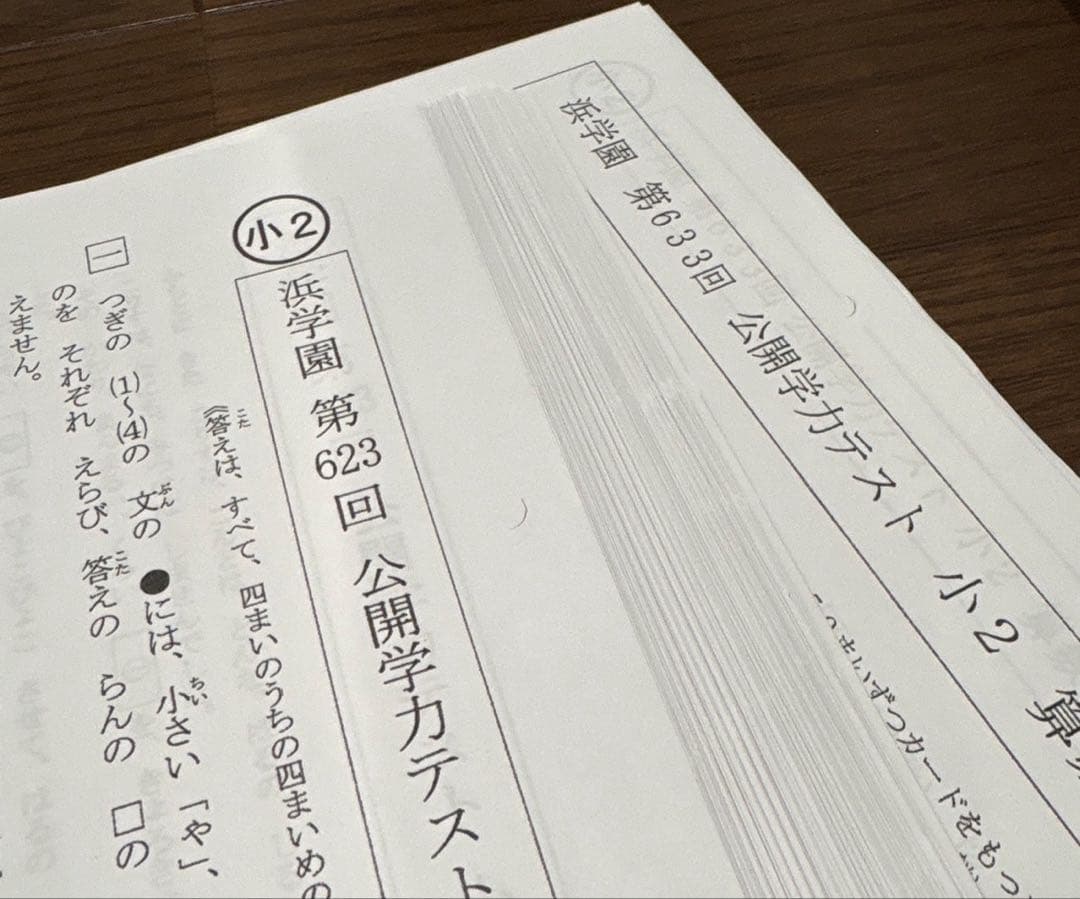 浜学園 第633回 公開学力テスト 小2 算
いずつカードをもっ
小2
浜学園 第623回 公開学力テスト
《答えは、すべて、四まいのうちの四まいめの
こた
一 つぎの (1)~(4)の 文の ●には、小さい「や」、
ぶん
ちい
のを それぞれ えらび、答えの らんの □の
こた
えません。